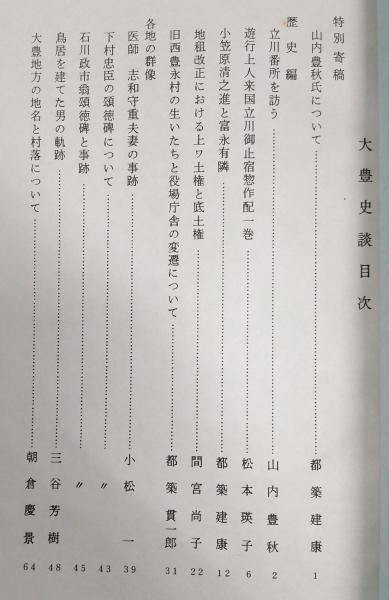 大豊史談目次
特別寄稿
山内豊秋氏について……………………都築建康 1
歴史編
立川番所を訪う……………………山内豊秋 2
遊行上人来国立川御止宿惣作配一巻……………………松本瑛子 6
小笠原清之進と富永有隣……………………都築建康 12
地租改正における上ワ土権と底土権……………………間宮尚子 22
旧西豊永村の生いたちと役場庁舎の変遷について……………………都築貫一郎 31
各地の群像
医師 志和守重夫妻の事跡……………………小松一 39
下村忠臣の頌徳碑について……………………〃 43
石川政市翁頌徳碑と事跡……………………〃 45
鳥居を建てた男の軌跡……………………三谷芳樹 48
大豊地方の地名と村落について……………………朝倉慶景 64